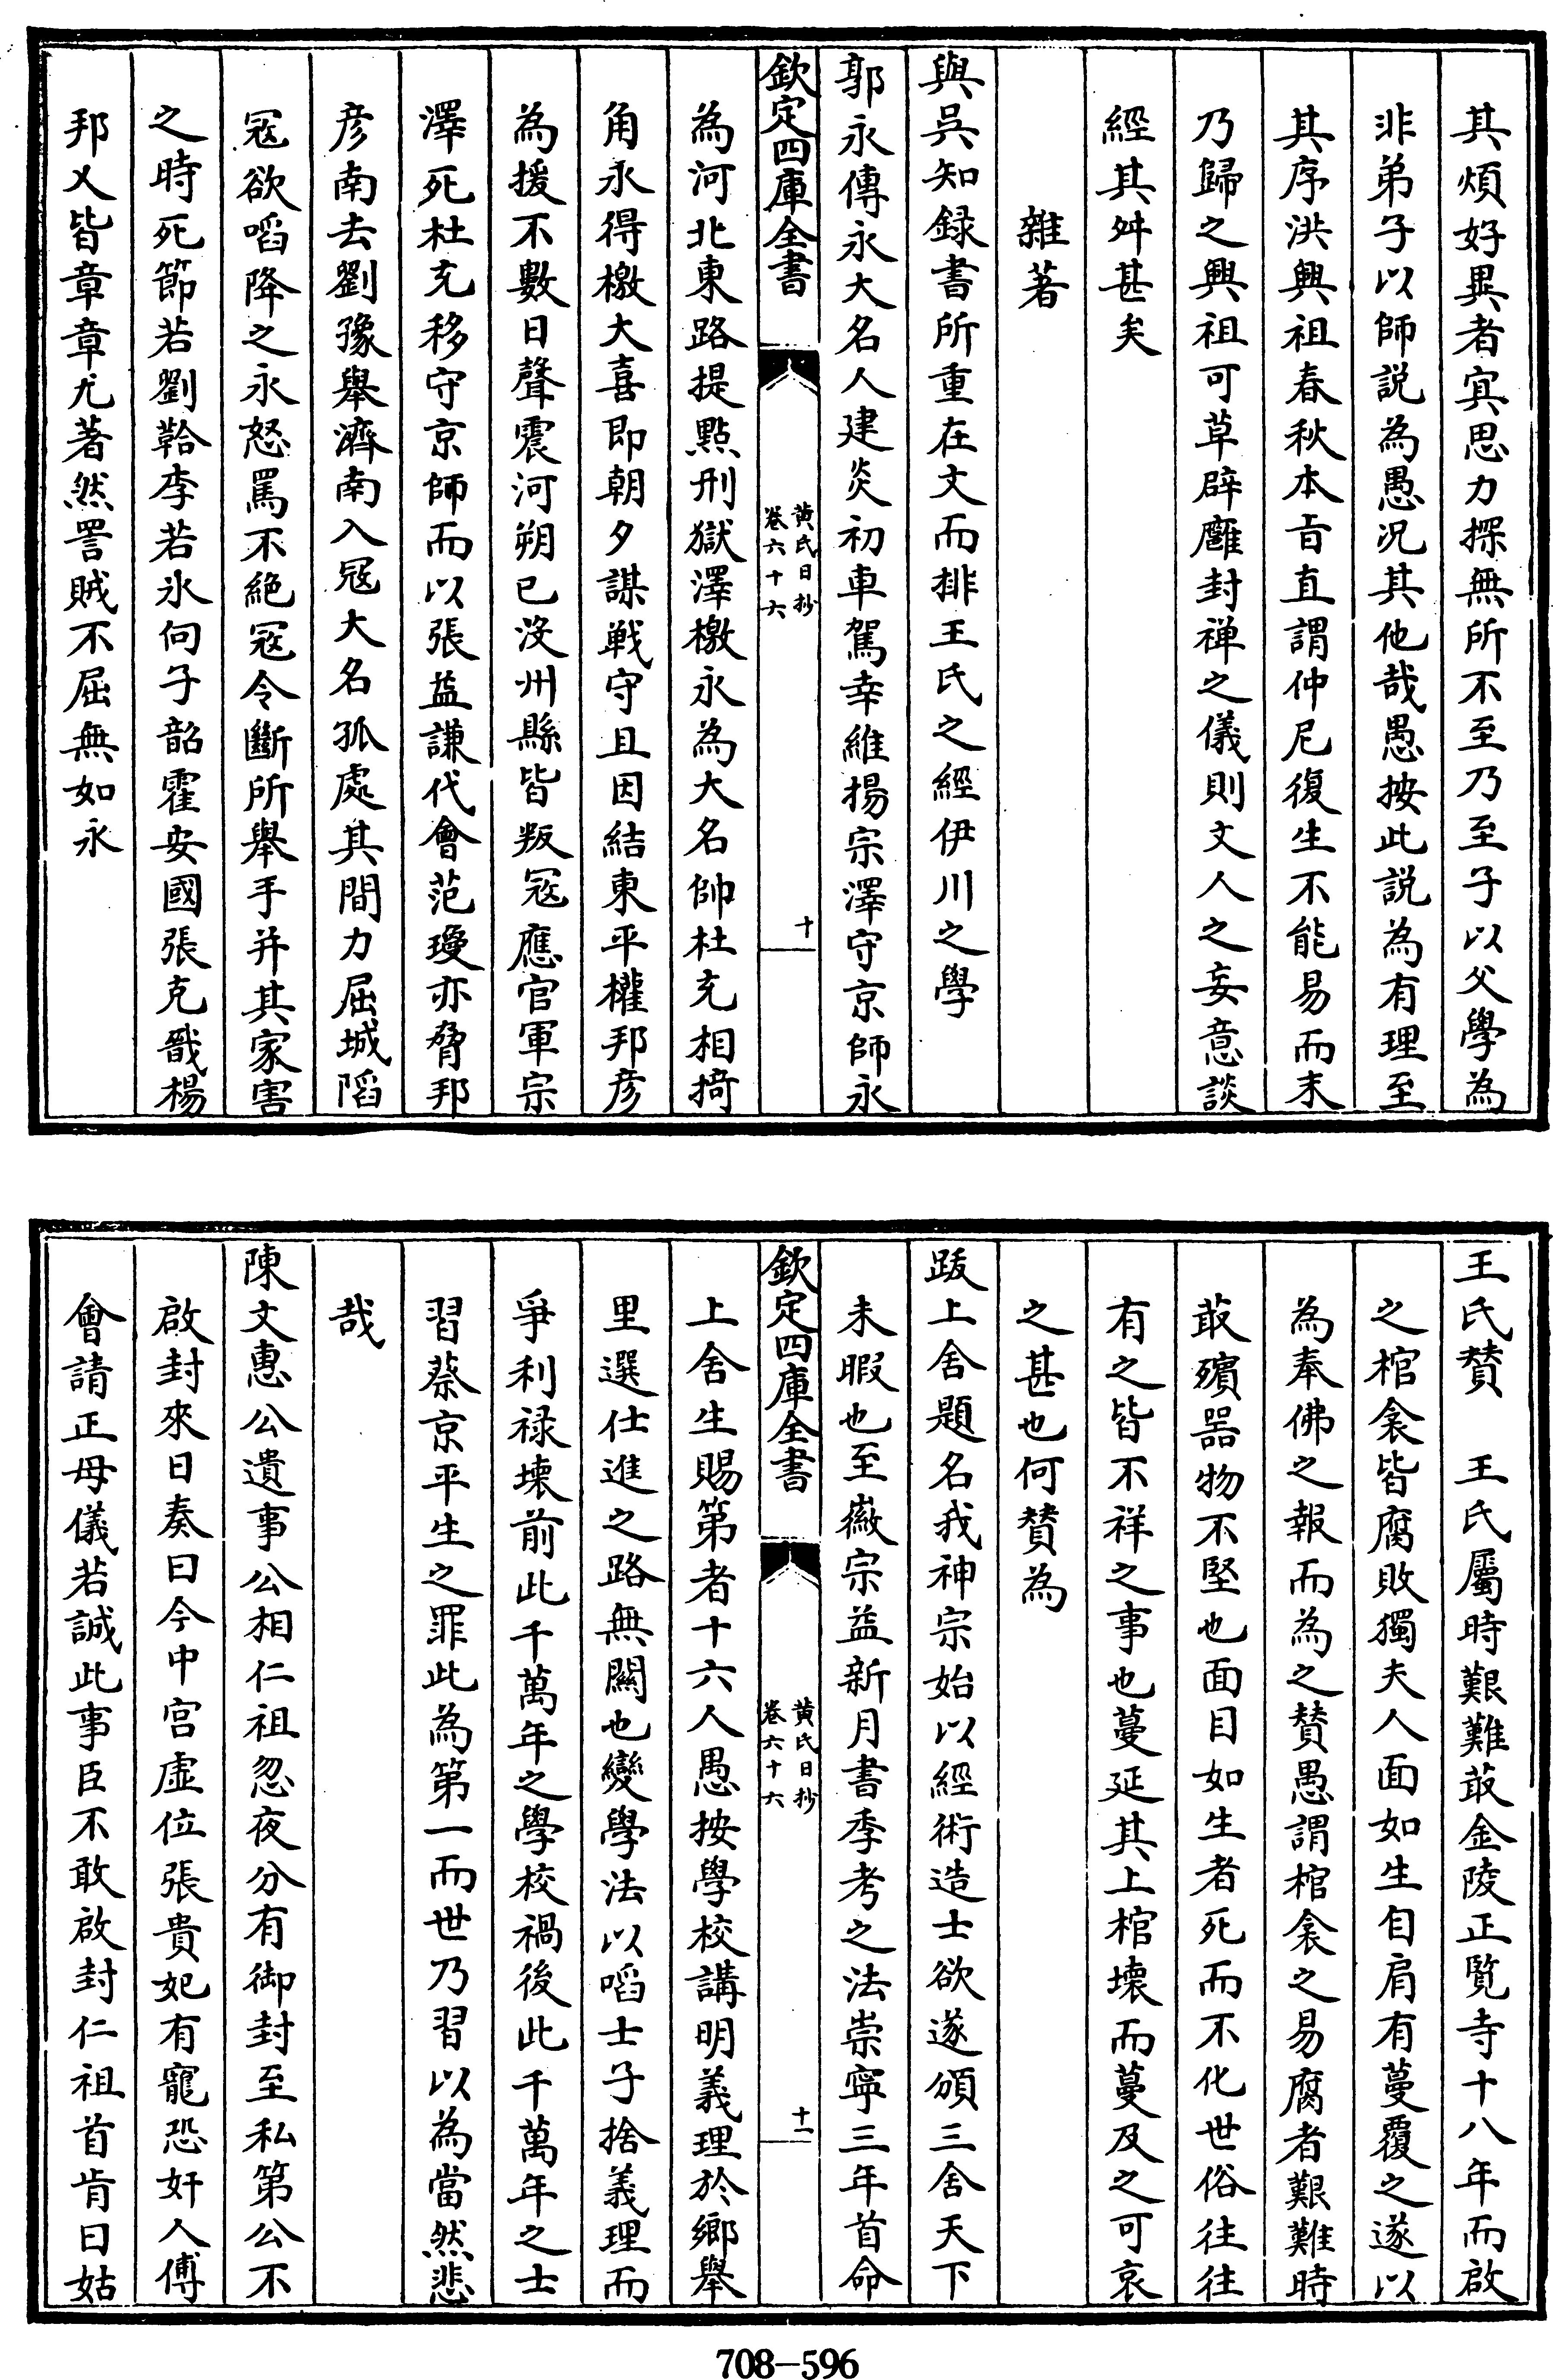 其煩好異者㝠思力探無所不至乃至子以父學為
非弟子以師説為愚况其他哉愚按此説為有理至
其序洪興祖春秋本㫖直謂仲尼復生不能易而末
乃歸之興祖可草辟廱封禅之儀則文人之妄意談
經其舛甚矣
雜著
與吳知録書所重在文而排王氏之經伊川之學
郭永傳永大名人建炎初車駕幸維揚宗澤守京師永
欽定四庫全書
黄氏日抄
卷六十六
十
為河北東路提點刑獄澤檄永為大名帥杜充相掎
角永得檄大喜即朝夕謀戰守且因結東平權邦彦
為援不數日聲震河朔已沒州縣皆叛冦應官軍宗
澤死杜充移守京師而以張益謙代會范瓊亦脅邦
彦南去劉豫舉濟南入冦大名孤處其間力屈城䧟
冦欲啗降之永怒罵不絶冦令斷所舉手并其家害
之時死節若劉韐李若氷何子韶霍安國張克戩楊
邦乂皆章章尤著然詈賊不屈無如永
王氏贊　王氏屬時艱難菆金陵正覧寺十八年而啟
之棺衾皆腐敗獨夫人面如生自肩有蔓覆之遂以
為奉佛之報而為之贊愚謂棺衾之易腐者艱難時
菆殯噐物不堅也面目如生者死而不化世俗往往
有之皆不祥之事也蔓延其上棺壊而蔓及之可哀
之甚也何贊為
跋上舍題名我神宗始以經術造士欲遂頒三舍天下
未暇也至徽宗益新月書季考之法崇寧三年首命
欽定四庫全書
黄氏日抄
卷六十六
十一
上舍生賜第者十六人愚按學校講明義理於鄉舉
里選仕進之路無闗也變學法以啗士子捨義理而
爭利祿壊前此千萬年之學校禍後此千萬年之士
習蔡京平生之罪此為第一而世乃習以為當然悲
哉
陳文惠公遺事公相仁祖忽夜分有御封至私第公不
啟封來日奏曰今中宫虛位張貴妃有寵恐奸人傅
會請正母儀若誠此事臣不敢啟封仁祖首肯曰姑
708-596